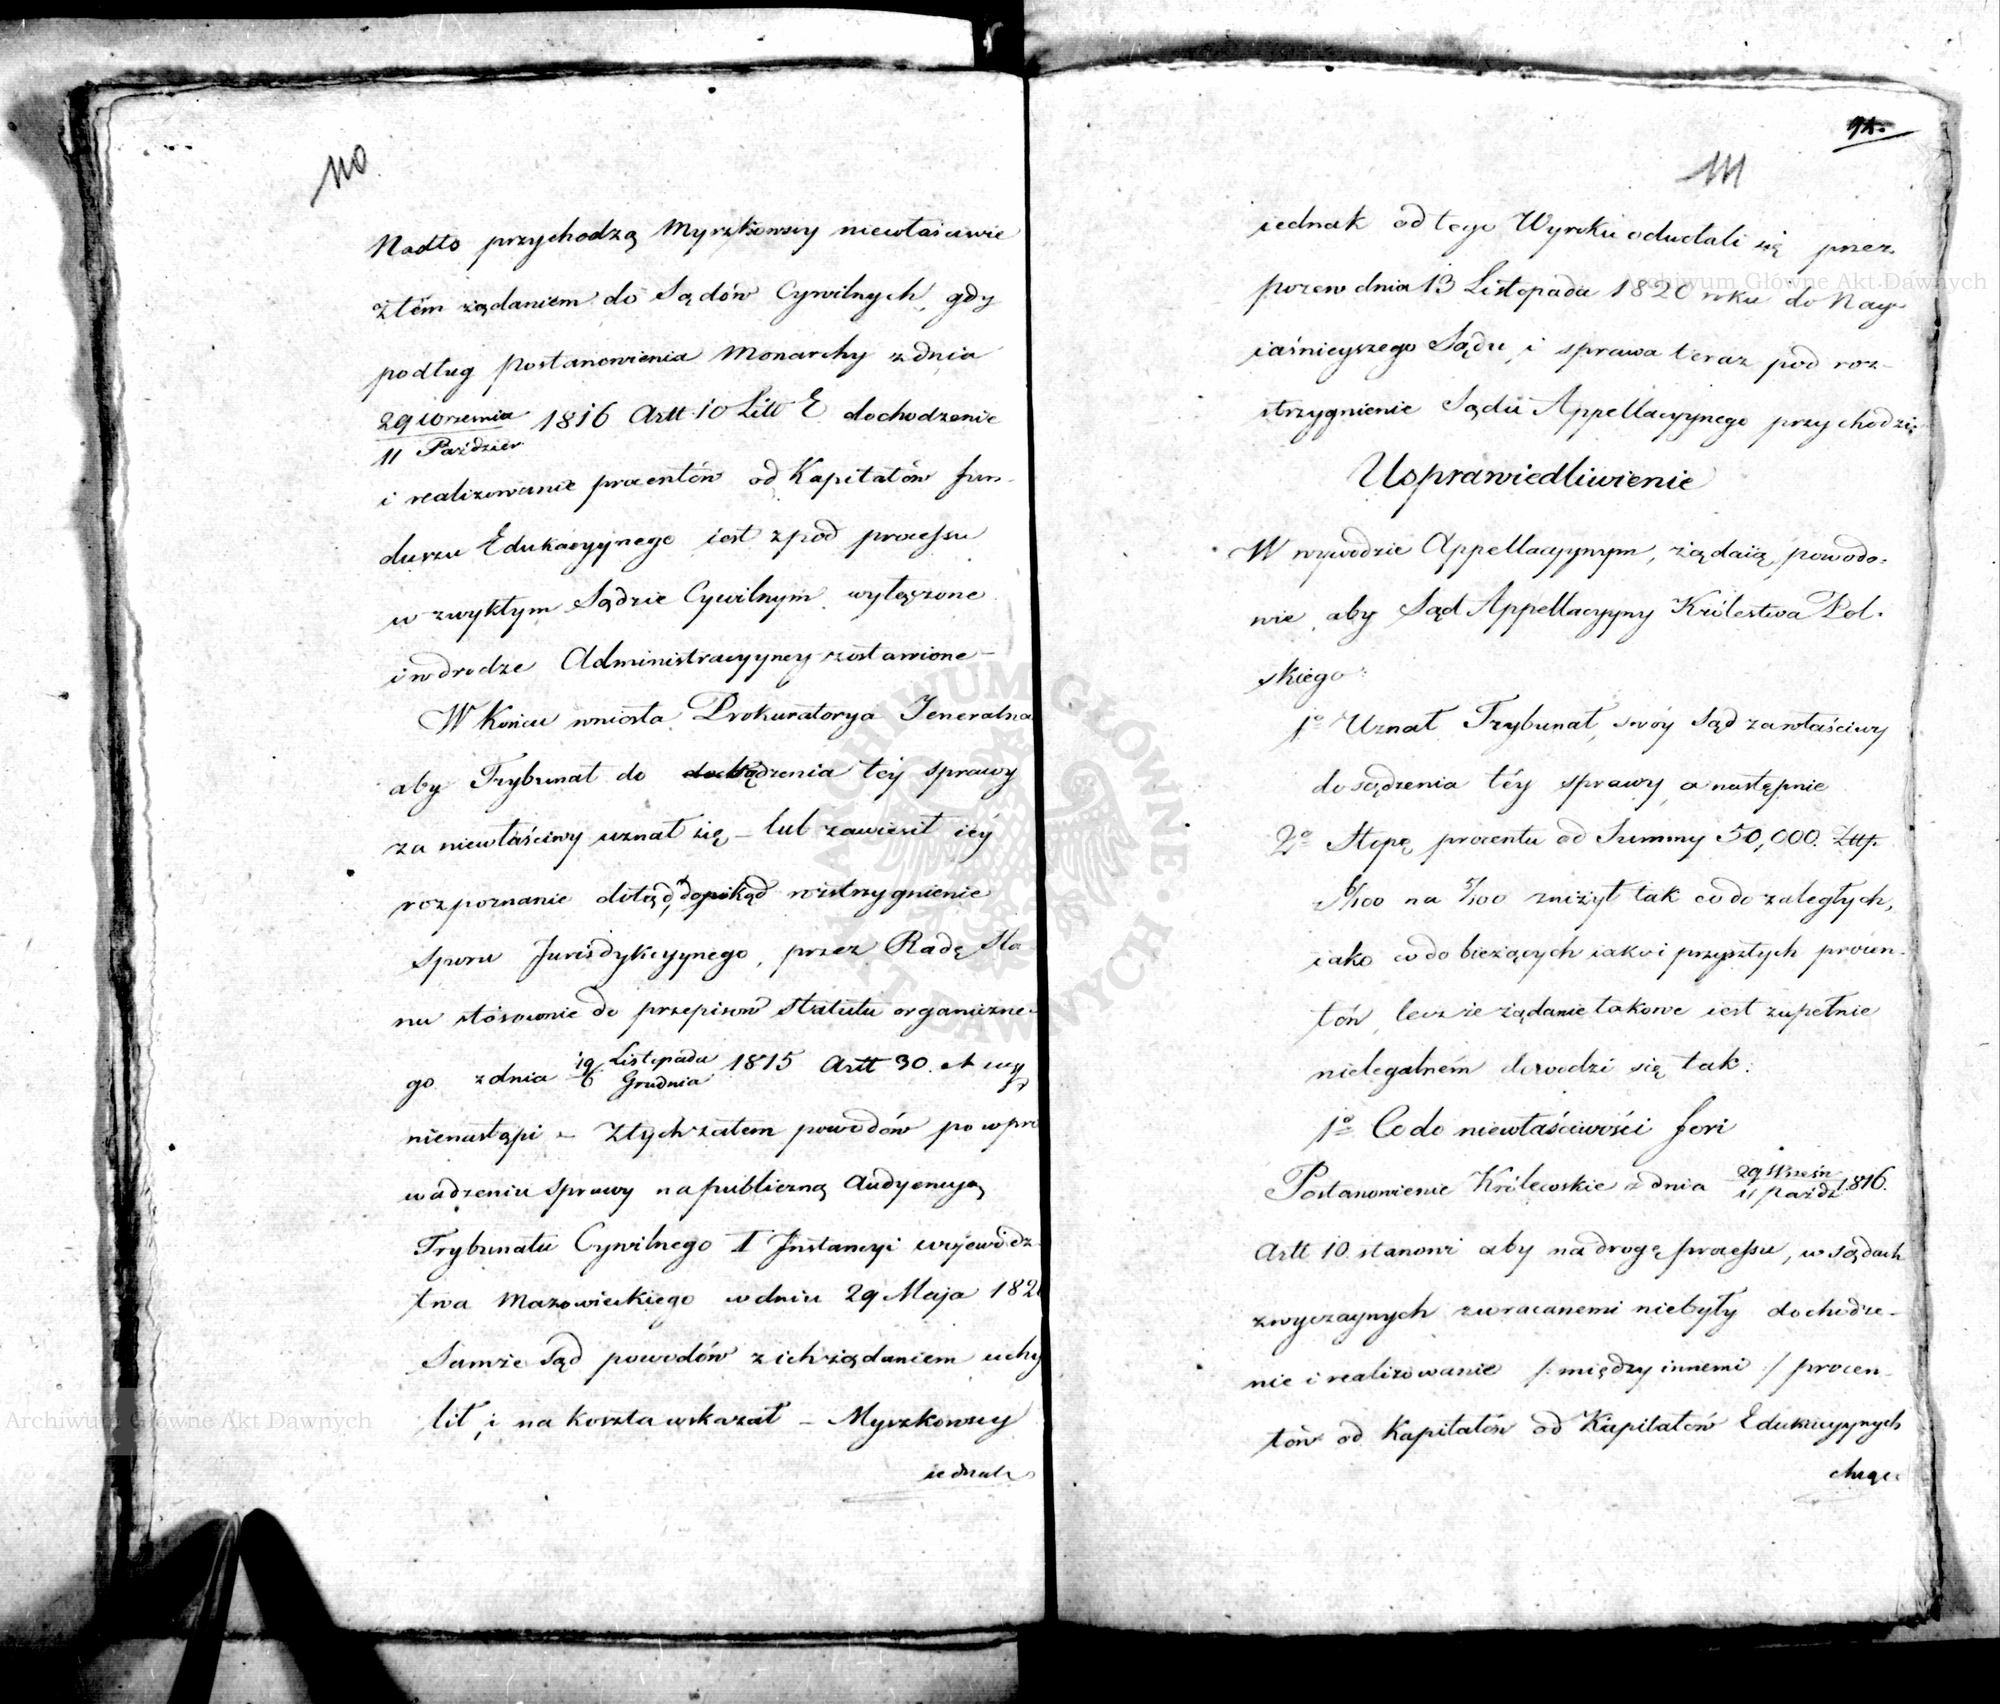 110
Nadto przychodzą Myszkowscy niewłaściwie
z tém żądaniem do Sądów Cywilnych, gdy
podług postanowienia Monarchy z dnia
29 Września / 11 Paździer. 1816 Artt 10 Litt E dochodzenie
i realizowanie procentów od Kapitałów fun-
duszu Edukacyynego iest z pod processu
w zwykłym Sądzie Cywilnym wyłączone
i w drodze Administracyyney zostawione –
W końcu wniosła Prokuratorya Jeneralna
aby Trybunał do sądzenia téy sprawy
za niewłaściwy uznał się – lub zawiesił iéy
rozpoznanie dotąd, dopokąd rozstrzygnienie
sporu Jurisdykcyynego, przez Radę Sta-
nu stósownie do przepisów Statutu organiczne-
go z dnia 19 Listopada / 1 Grudnia 1815 Artt 30.
nienastąpi – Z tych zatem powodów po wpro
wadzeniu sprawy na publiczną Audyencyą
Trybunału Cywilnego I Instancyi wojewódz-
twa Mazowieckiego w dniu 29 Maja 182
Samże Sąd powodów z ich żądaniem uchy
lił i na koszta wskazał – Myszkowscy
iednak
91.
111
iednak od tego Wyroku odwołali się przez
pozew dnia 13 Listopada 1820 roku do Nay-
iaśnieyszego Sądu, i sprawa teraz pod roz-
strzygnienie Sądu Appellacyynego przychodzi.
Usprawiedliwienie
W wywodzie Appellacyynym, żądaią powodo-
wie aby Sąd Appellacyyny Królestwa Pol-
skiego:
1o Uznał Trybunał, swóy Sąd za właściwy
do sądzenia téy sprawy, a następnie
2o Stopę procentu od Summy 50,000. Złłp.
z 6/100 na 5/100 zniżył tak co do zaległych,
iako co do bieżących iako i przyszłych procen-
tów, lecz że żądanie takowe iest zupełnie
nielegalném dowodzi się tak:
1o Co do niewłaściwości fori
Postanowienie Królewskie z dnia 29 Wrześn / 11 Paźdz 1816.
Artt 10. stanowi aby na drogę processu, w sądach
zwyczaynych zwracanemi niebyły dochodze-
nie i realizowanie /: między innemi :/ procen-
tów od Kapitałów od Kapitałów Edukacyynych